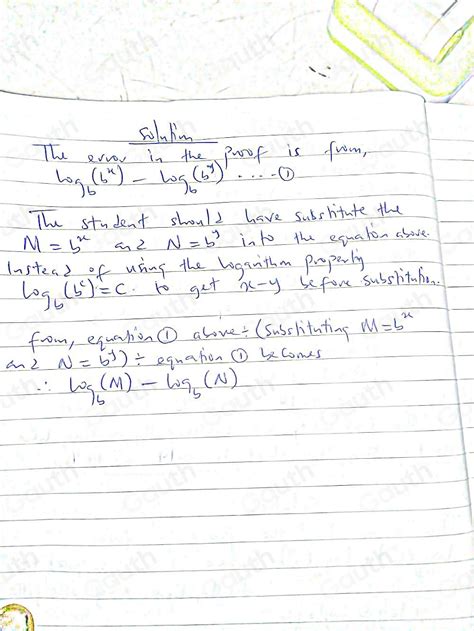 Solution
The error in the proof is from,
Log_b(b^x) - Log_b(b^y) ---- ①
The student should have substitute the
M = b^x and N = b^y into the equation above.
Instead of using the Logarithm Property
Log_b(b^c) = C. to get x-y before substitution.
from, equation ① above ÷ (substituting M = b^x
and N = b^y) ÷ equation ① becomes
∴ Log_b(M) - Log_b(N)
Gauth